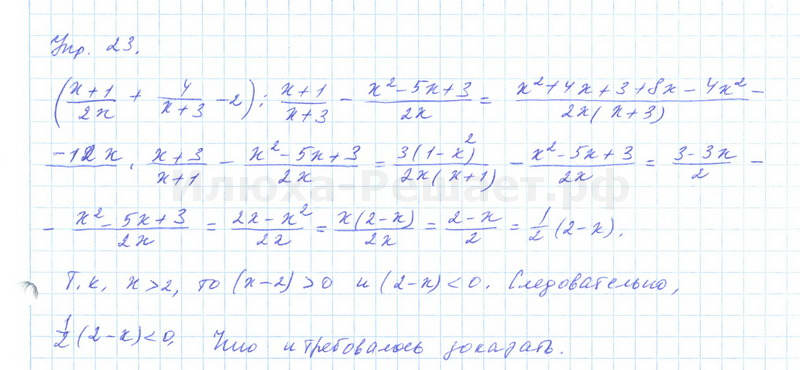 Упр. 23.
((x+1)/(2x) + 4/(x+3) - 2) : (x+1)/(x+3) - (x²-5x+3)/(2x) = (x²+4x+3+8x-4x²-)/(2x(x+3))
(-12x) · (x+3)/(x+1) - (x²-5x+3)/(2x) = 3(1-x²)/(2x(x+1)) - (x²-5x+3)/(2x) = (3-3x)/2 -
- (x²-5x+3)/(2x) = (2x-x²)/(2x) = x(2-x)/(2x) = (2-x)/2 = 1/2 (2-x).
Т.к. x>2, то (x-2)>0 и (2-x)<0. Следовательно,
1/2 (2-x)<0. Что и требовалось доказать.
Илюха-Решает.рф